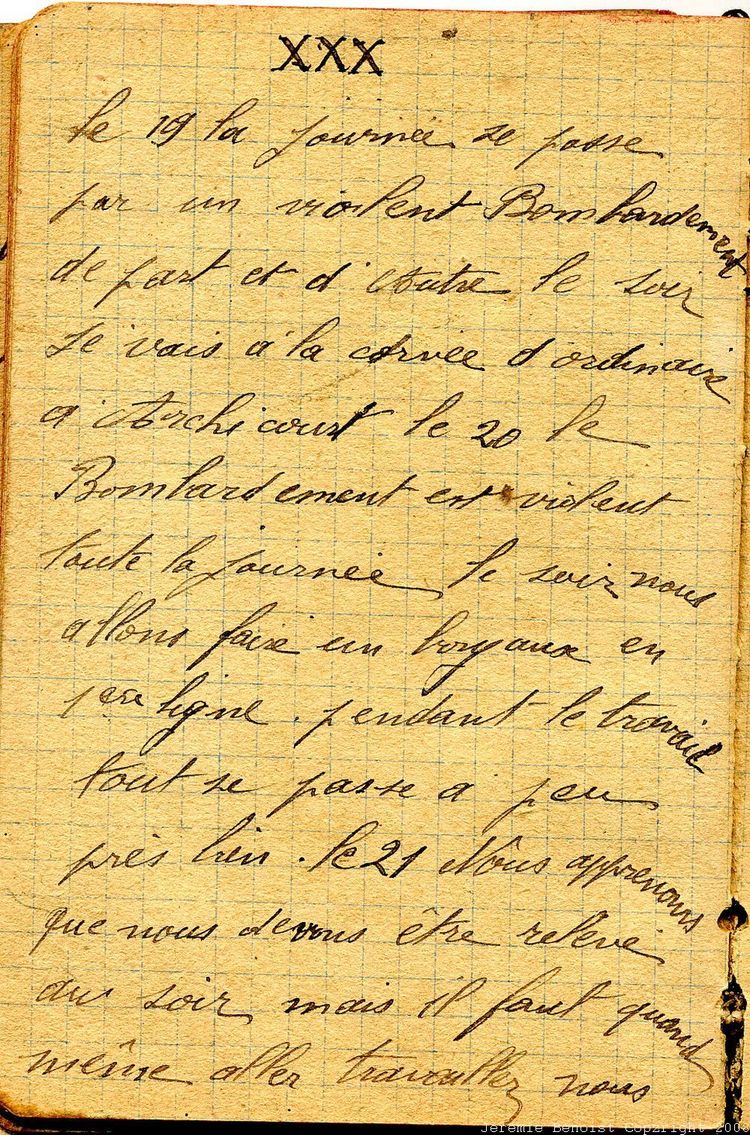 XXX
le 19 la journée se passe
par un violent Bombardement
de part et d'Autre le soir
Je vais à la corvée d'ordinaire
a Archicourt le 20 le
Bombardement est violent
toute la journée le soir nous
allons faire un boyaux en
1ère ligne. pendant le travail
tout se passe a peu
près bien. le 21 Nous apprenons
que nous devons être relevé
au soir mais il faut quand
même aller travailler nous
Jeremie Benoist Copyright